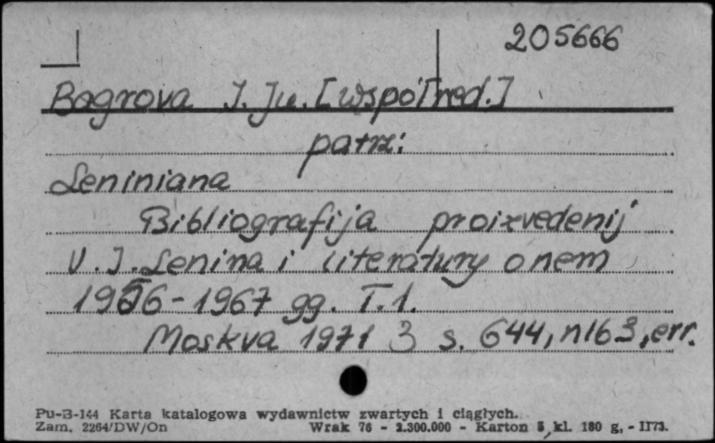 205666
Bagrova J. Ju. [współred.]
patrz:
Leniniana
Bibliografija proizvedenij
V. J. Lenina i literatury o nem
1956-1967 gg. T.1.
Moskva 1971 3 s. 644, nlb 3, err.
Pu-B-144 Karta katalogowa wydawnictw zwartych i ciągłych.
Zam. 2264/DW/On Wrak 76 - 2.300.000 - Karton 5 kl. 180 g, - II73.